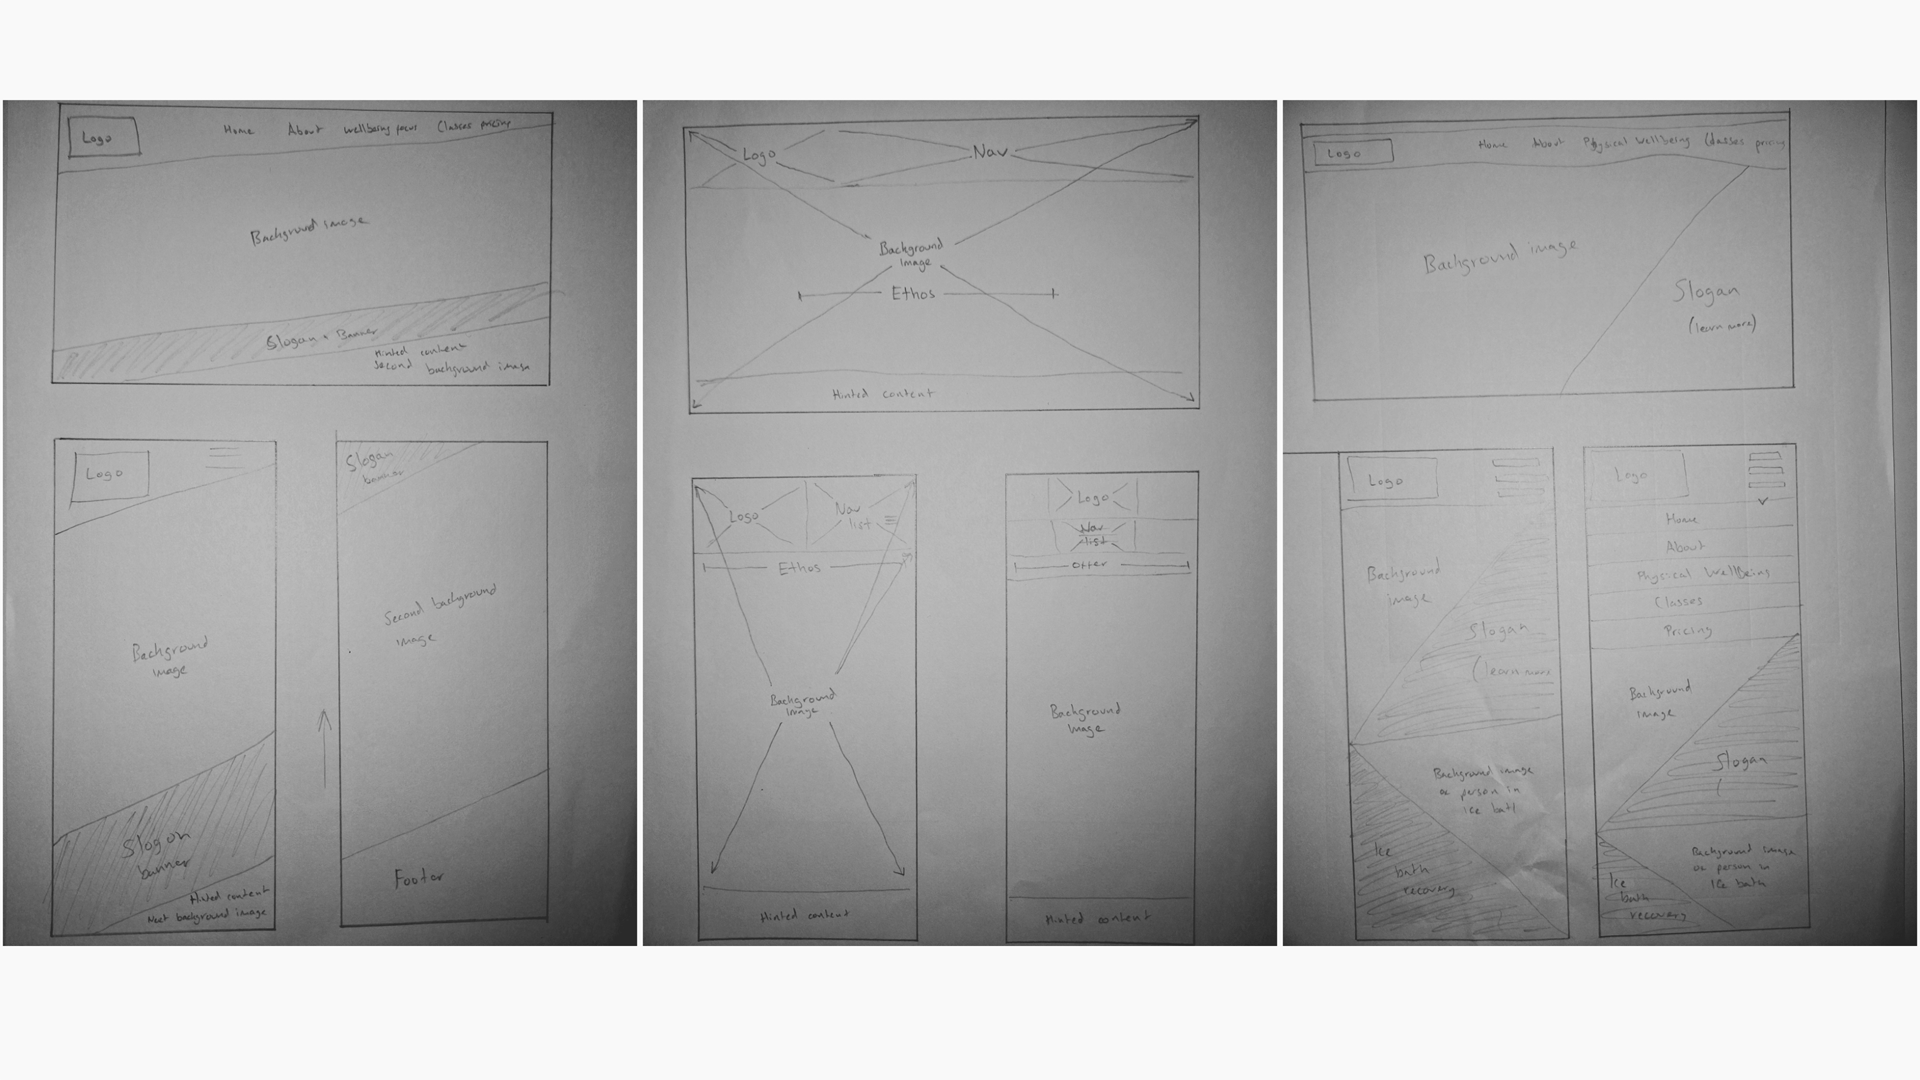 Logo
Home About Wellbeing focus Classes pricing
Background image
Slogan + Banner
Hinted content
second background image
Logo
Background
image
Slogan
banner
Hinted content
Next background image
Slogan
banner
Second background
image
Footer
Logo
Nav
Background
image
Ethos
Hinted content
Logo
Nav
list
Ethos
Background
image
Hinted content
Logo
Nav
list
offer
Background
image
Hinted content
Logo
Home About Physical Wellbeing Classes pricing
Background image
Slogan
(learn more)
Logo
Background
image
Slogan
(learn more
Background image
or person in
ice bath
Ice
bath
recovery
Logo
Home
About
Physical WellBeing
Classes
Pricing
Background
image
Slogan
Background image
or person in
Ice bath
Ice
bath
recovery